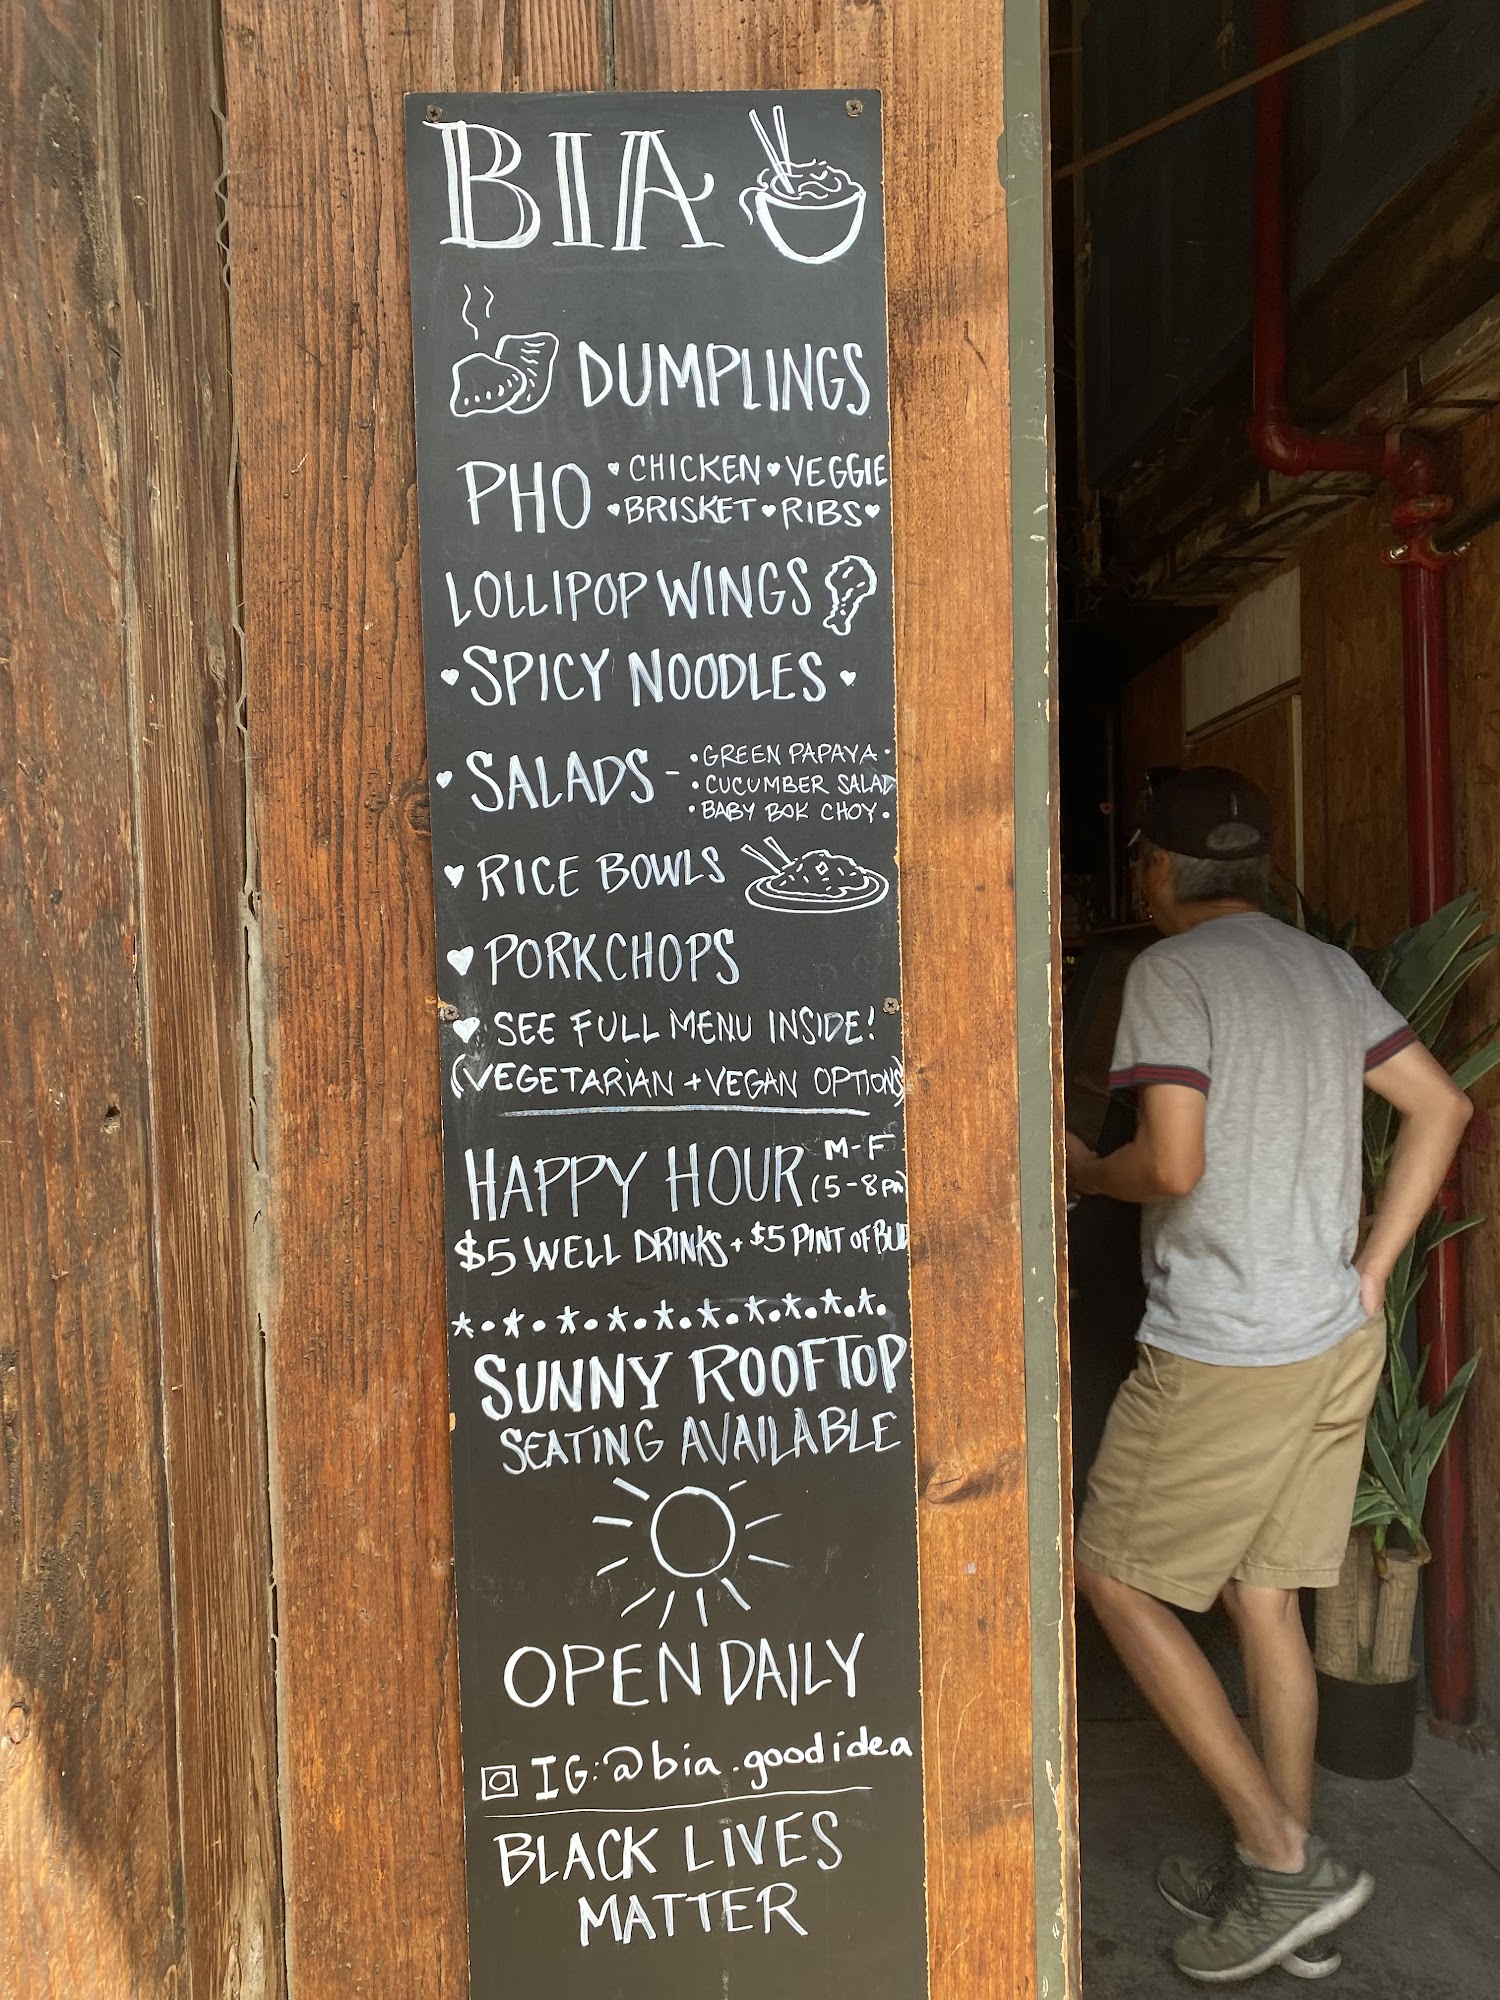 BIA
DUMPLINGS
PHO ♥ CHICKEN ♥ VEGGIE
♥ BRISKET ♥ RIBS ♥
LOLLIPOP WINGS
♥ SPICY NOODLES ♥
♥ SALADS - • GREEN PAPAYA •
• CUCUMBER SALAD
• BABY BOK CHOY •
♥ RICE BOWLS
♥ PORKCHOPS
♥ SEE FULL MENU INSIDE!
(VEGETARIAN + VEGAN OPTIONS)
HAPPY HOUR M-F
(5-8pm)
$5 WELL DRINKS + $5 PINT OF BUD
SUNNY ROOFTOP
SEATING AVAILABLE
OPEN DAILY
IG: @bia.goodidea
BLACK LIVES
MATTER